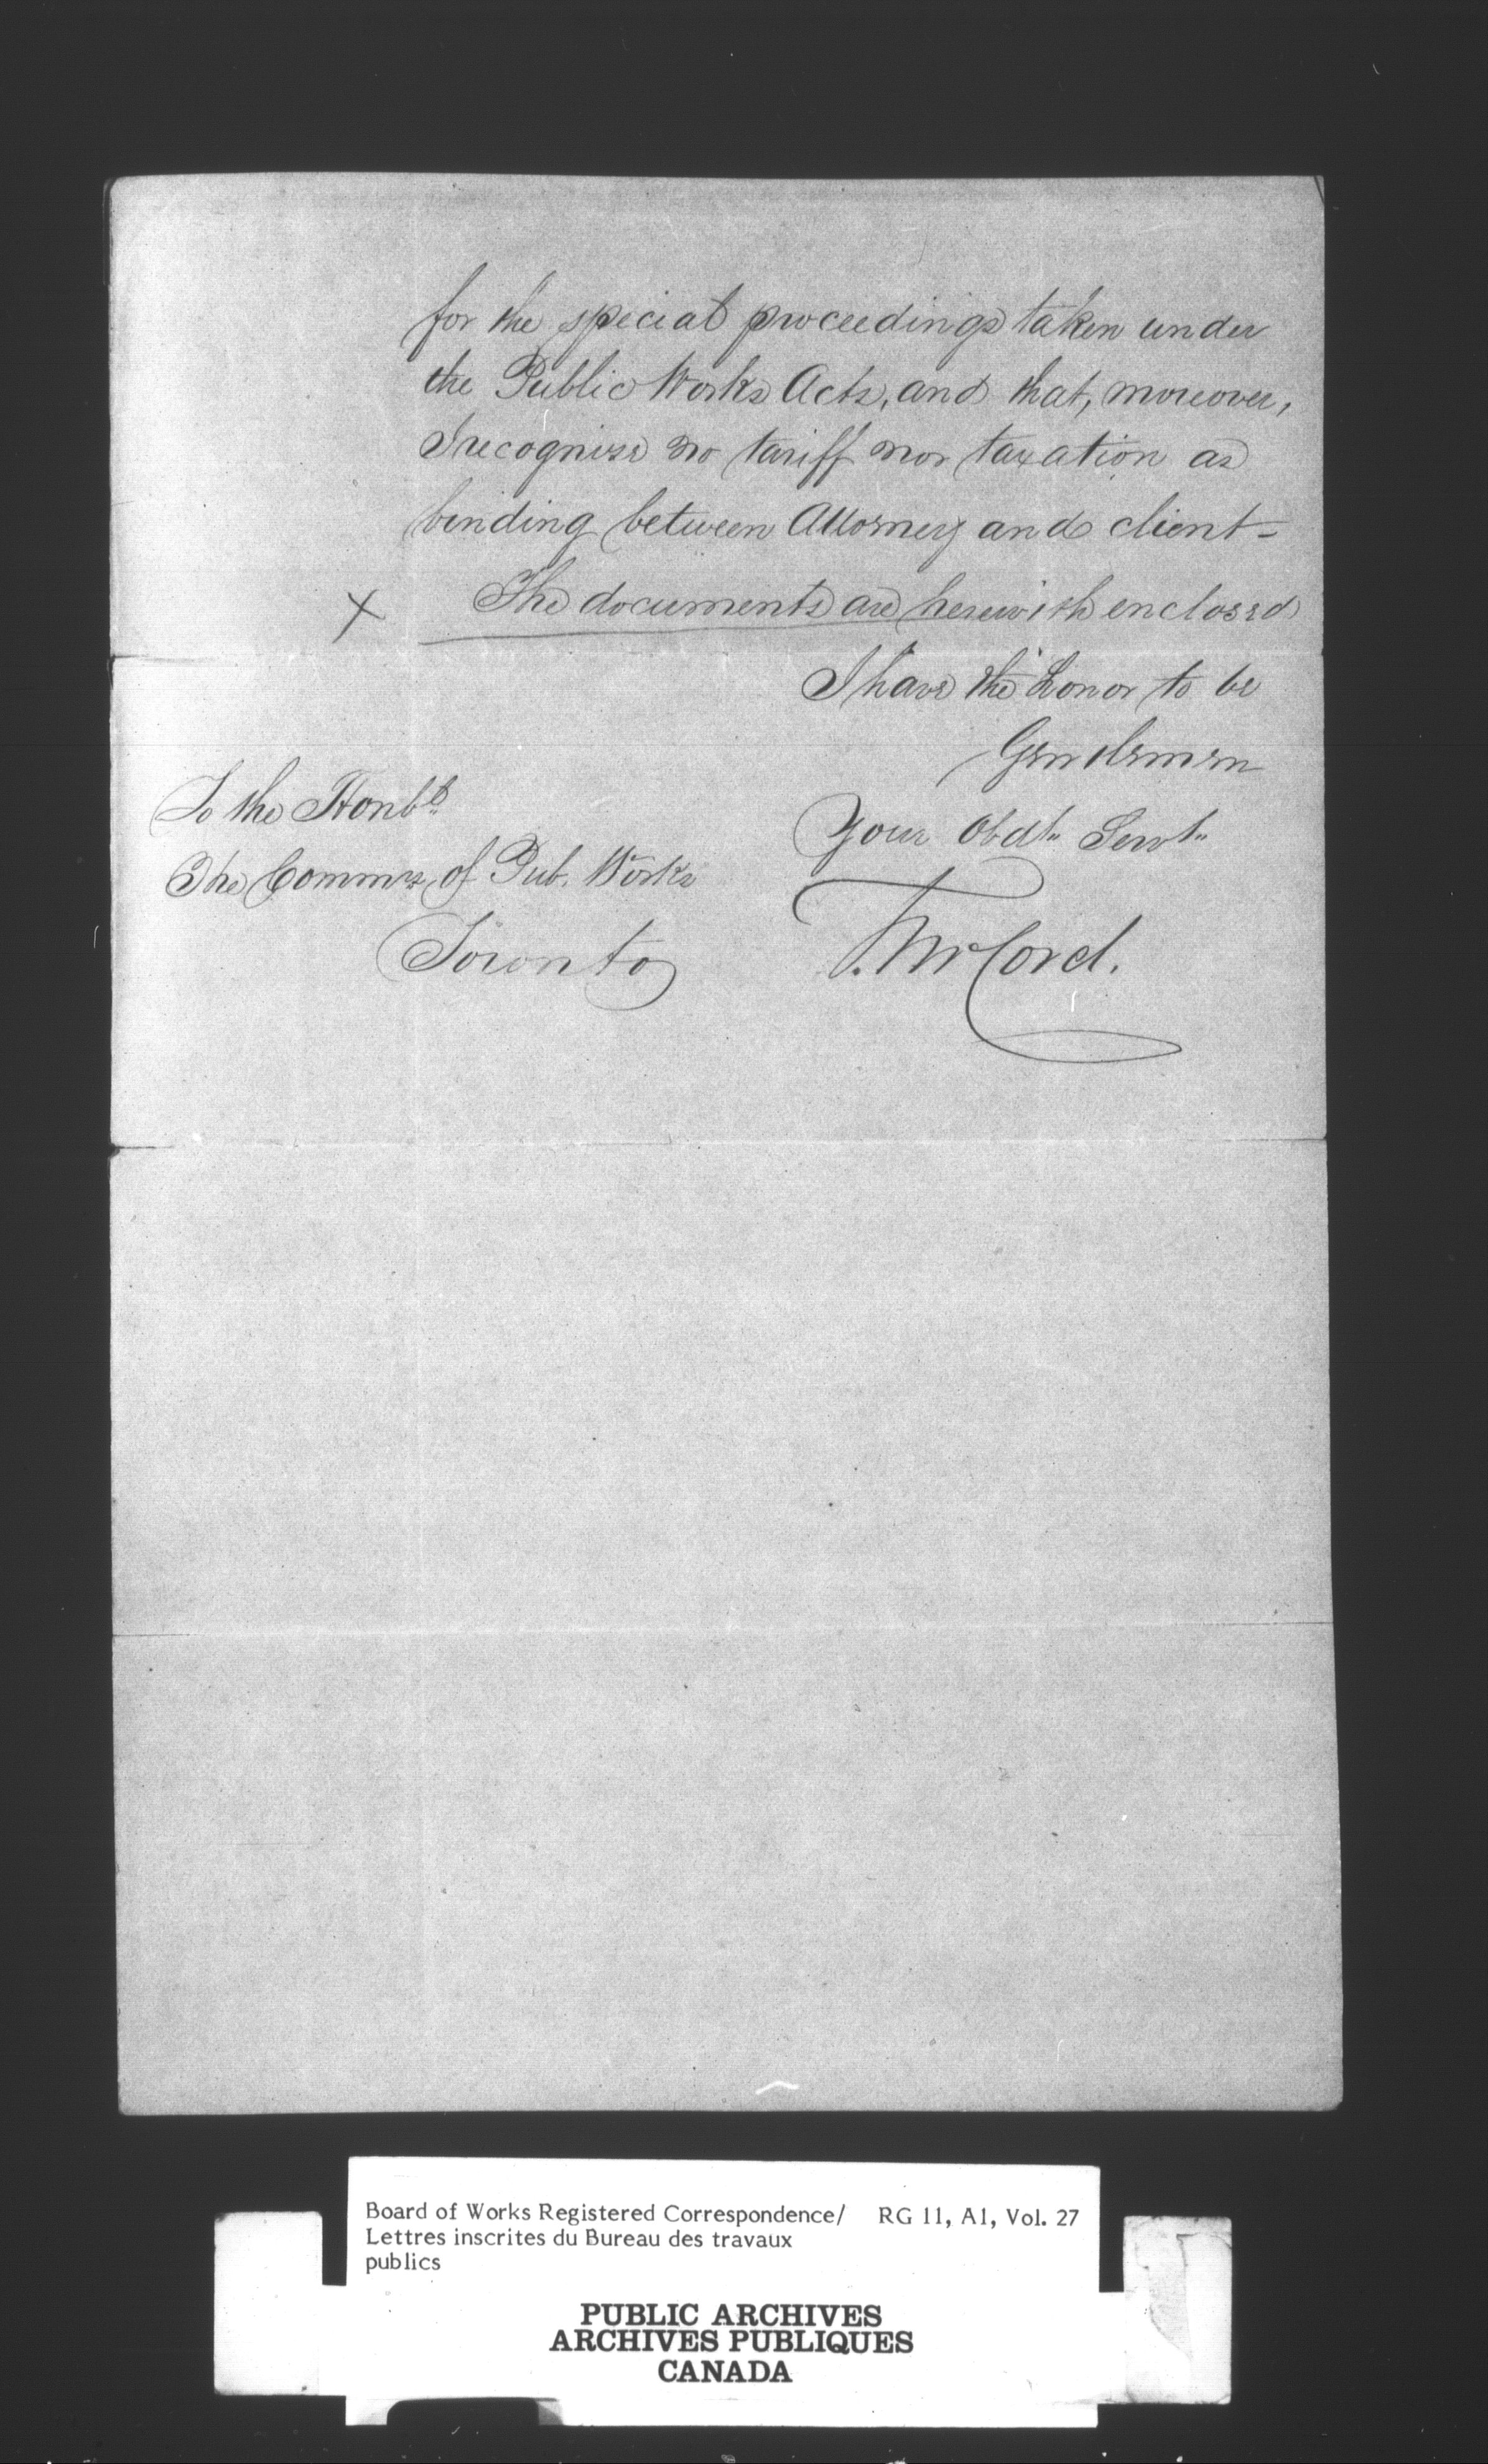 for the special proceedings taken under
the Public Works Acts, and that, moreover,
I recognise no tariff nor taxation as
binding between Attorney and client -
X The documents are herewith enclosed
I have the honor to be
Gentlemen
Your Obdt Servt
T. McCord.
To the Honble
The Commrs of Pub. Works
Toronto
Board of Works Registered Correspondence/ RG 11, A1, Vol. 27
Lettres inscrites du Bureau des travaux
publics
PUBLIC ARCHIVES
ARCHIVES PUBLIQUES
CANADA